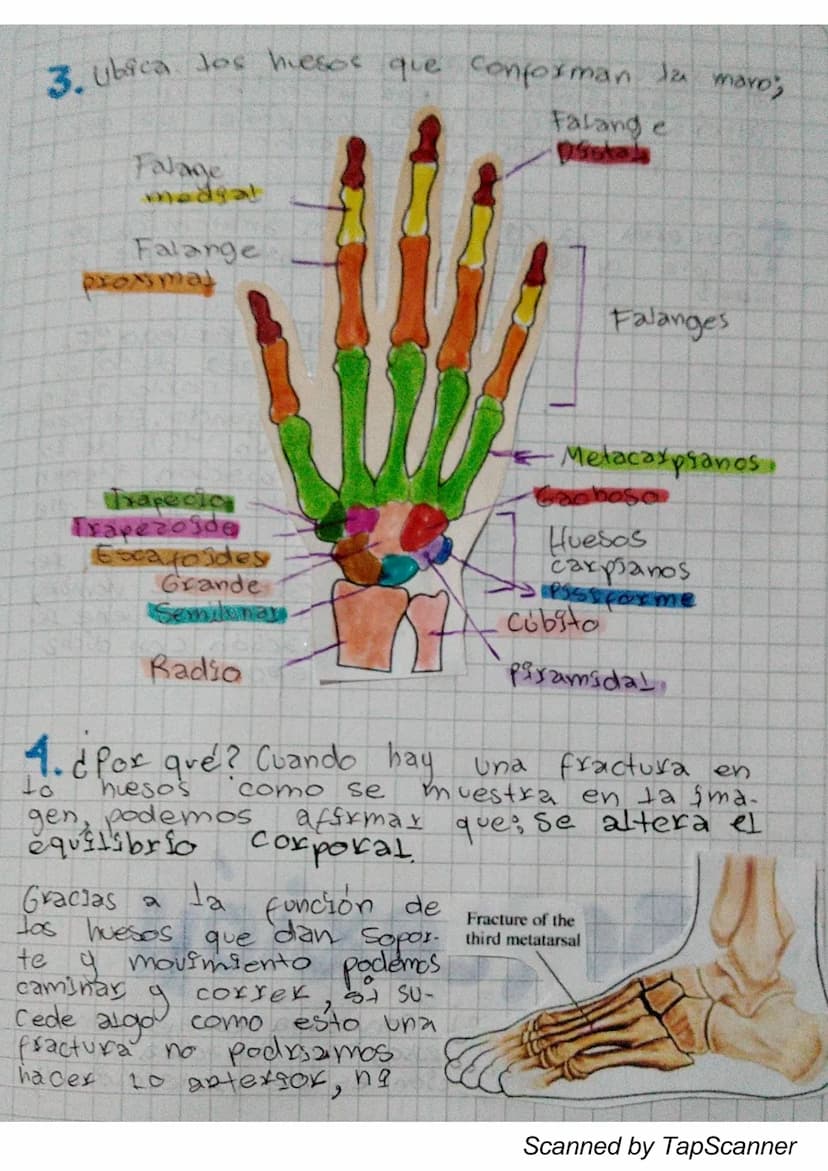 3. Ubica los huesos que conforman la mano;
Falange
Distal
Falage
medial
Falange
proximal
Falanges
Metacarpianos
Ganchoso
Trapecio
Trapezoide
Escafoides
Grande
Semilunar
Radio
Huesos
carpianos
Pisiforme
Cúbito
Piramidal
4. ¿Por qué? Cuando hay una fractura en
lo huesos como se muestra en la ima-
gen, podemos afirmar que; se altera el
equilibrio corporal.
Gracias a la función de
los huesos que dan sopor-
te y movimiento podemos
caminar y correr, si su-
cede algo como esto una
fractura no podriamos
hacer lo anterior, ni
Fracture of the
third metatarsal
Scanned by TapScanner